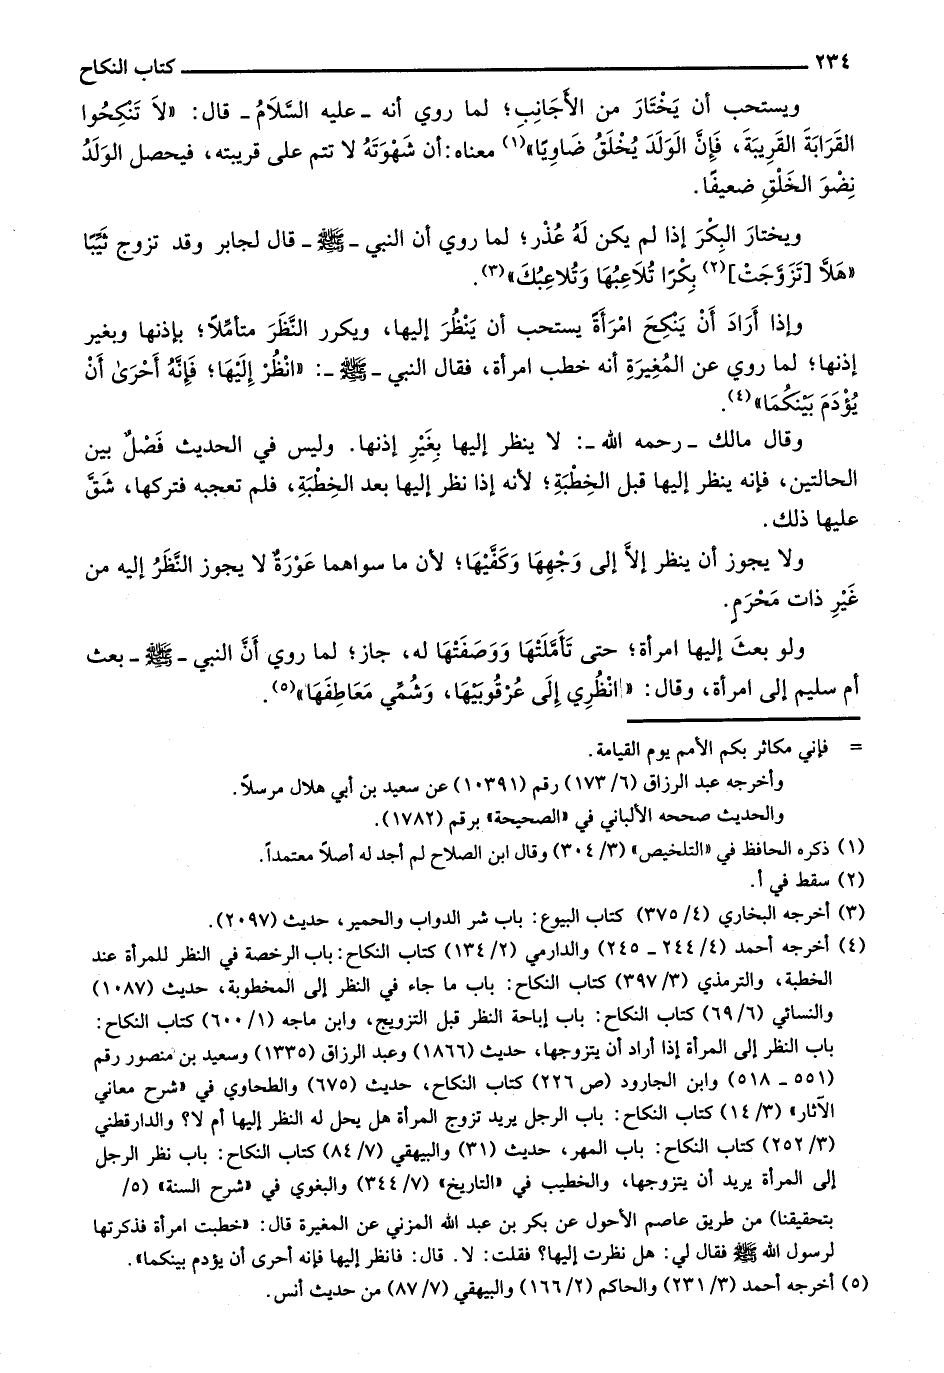 ٢٣٤ كتاب النكاح
ويستحب أن يَخْتَارَ من الأَجَانِبِ؛ لما روي أنه ـ عليه السَّلَامُ ـ قال: «لاَ تَنْكِحُوا
القَرَابَةَ القَرِيبَةَ، فَإِنَّ الوَلَدَ يُخْلَقُ ضَاوِيًا»(١) معناه: أن شَهْوَتَهُ لا تتم على قريبته، فيحصل الوَلَدُ
نِضْوَ الخَلْقِ ضعيفًا.
ويختارَ البِكْرَ إذا لم يكن لَهُ عُذْر؛ لما روي أن النبي ـ ﷺ ـ قال لجابر وقد تزوج ثَيِّبًا
«هَلاَّ [تَزَوَّجَتْ](٢) بِكْرًا تُلاَعِبُهَا وَتُلاعِبُكَ»(٣).
وإذا أَرَادَ أَنْ يَنْكِحَ امْرَأَةً يستحب أن يَنْظُرَ إليها، ويكرر النَّظَرَ متأمِّلاً؛ بإذنها وبغير
إذنها؛ لما روي عن المُغِيرَةِ أنه خطب امرأة، فقال النبي ـ ﷺ ـ: «انْظُرْ إِلَيْهَا؛ فَإِنَّهُ أَحْرَىٰ أَنْ
يُؤْدَمَ بَيْنَكُمَا»(٤).
وقال مالك ـ رحمه الله ـ: لا ينظر إليها بِغَيْرِ إذنها. وليس في الحديث فَصْلٌ بين
الحالتين، فإنه ينظر إليها قبل الخِطْبَةِ؛ لأنه إذا نظر إليها بعد الخِطْبَةِ، فلم تعجبه فتركها، شَقَّ
عليها ذلك.
ولا يجوز أن ينظر إلاَّ إلى وَجْهِهَا وَكَفَّيْهَا؛ لأن ما سواهما عَوْرَةٌ لا يجوز النَّظَرُ إليه من
غَيْرِ ذات مَحْرَمٍ.
ولو بعثَ إليها امرأة؛ حتى تَأَمَّلَتْهَا وَوَصَفَتْهَا له، جاز؛ لما روي أَنَّ النبي ـ ﷺ ـ بعث
أم سليم إلى امرأة، وقال: «انْظُرِي إِلَى عُرْقُوبَيْهَا، وَشُمِّي مَعَاطِفَهَا»(٥).
= فإني مكاثر بكم الأمم يوم القيامة.
وأخرجه عبد الرزاق (٦/ ١٧٣) رقم (١٠٣٩١) عن سعيد بن أبي هلال مرسلاً.
والحديث صححه الألباني في «الصحيحة» برقم (١٧٨٢).
(١) ذكره الحافظ في «التلخيص» (٣/ ٣٠٤) وقال ابن الصلاح لم أجد له أصلاً معتمداً.
(٢) سقط في أ.
(٣) أخرجه البخاري (٤/ ٣٧٥) كتاب البيوع: باب شر الدواب والحمير، حديث (٢٠٩٧).
(٤) أخرجه أحمد (٤/ ٢٤٤ ـ ٢٤٥) والدارمي (٢/ ١٣٤) كتاب النكاح: باب الرخصة في النظر للمرأة عند
الخطبة، والترمذي (٣/ ٣٩٧) كتاب النكاح: باب ما جاء في النظر إلى المخطوبة، حديث (١٠٨٧)
والنسائي (٦/ ٦٩) كتاب النكاح: باب إباحة النظر قبل التزويج، وابن ماجه (١/ ٦٠٠) كتاب النكاح:
باب النظر إلى المرأة إذا أراد أن يتزوجها، حديث (١٨٦٦) وعبد الرزاق (١٣٣٥) وسعيد بن منصور رقم
(٥١٨ ـ ٥٥١) وابن الجارود (ص ٢٢٦) كتاب النكاح، حديث (٦٧٥) والطحاوي في «شرح معاني
الآثار» (٣/ ١٤) كتاب النكاح: باب الرجل يريد تزوج المرأة هل يحل له النظر إليها أم لا؟ والدارقطني
(٣/ ٢٥٢) كتاب النكاح: باب المهر، حديث (٣١) والبيهقي (٧/ ٨٤) كتاب النكاح: باب نظر الرجل
إلى المرأة يريد أن يتزوجها، والخطيب في «التاريخ» (٧/ ٣٤٤) والبغوي في «شرح السنة» (٥/
بتحقيقنا) من طريق عاصم الأحول عن بكر بن عبد الله المزني عن المغيرة قال: «خطبت امرأة فذكرتها
لرسول الله ﷺ فقال لي: هل نظرت إليها؟ فقلت: لا. قال: فانظر إليها فإنه أحرى أن يؤدم بينكما».
(٥) أخرجه أحمد (٣/ ٢٣١) والحاكم (٢/ ١٦٦) والبيهقي (٧/ ٨٧) من حديث أنس.